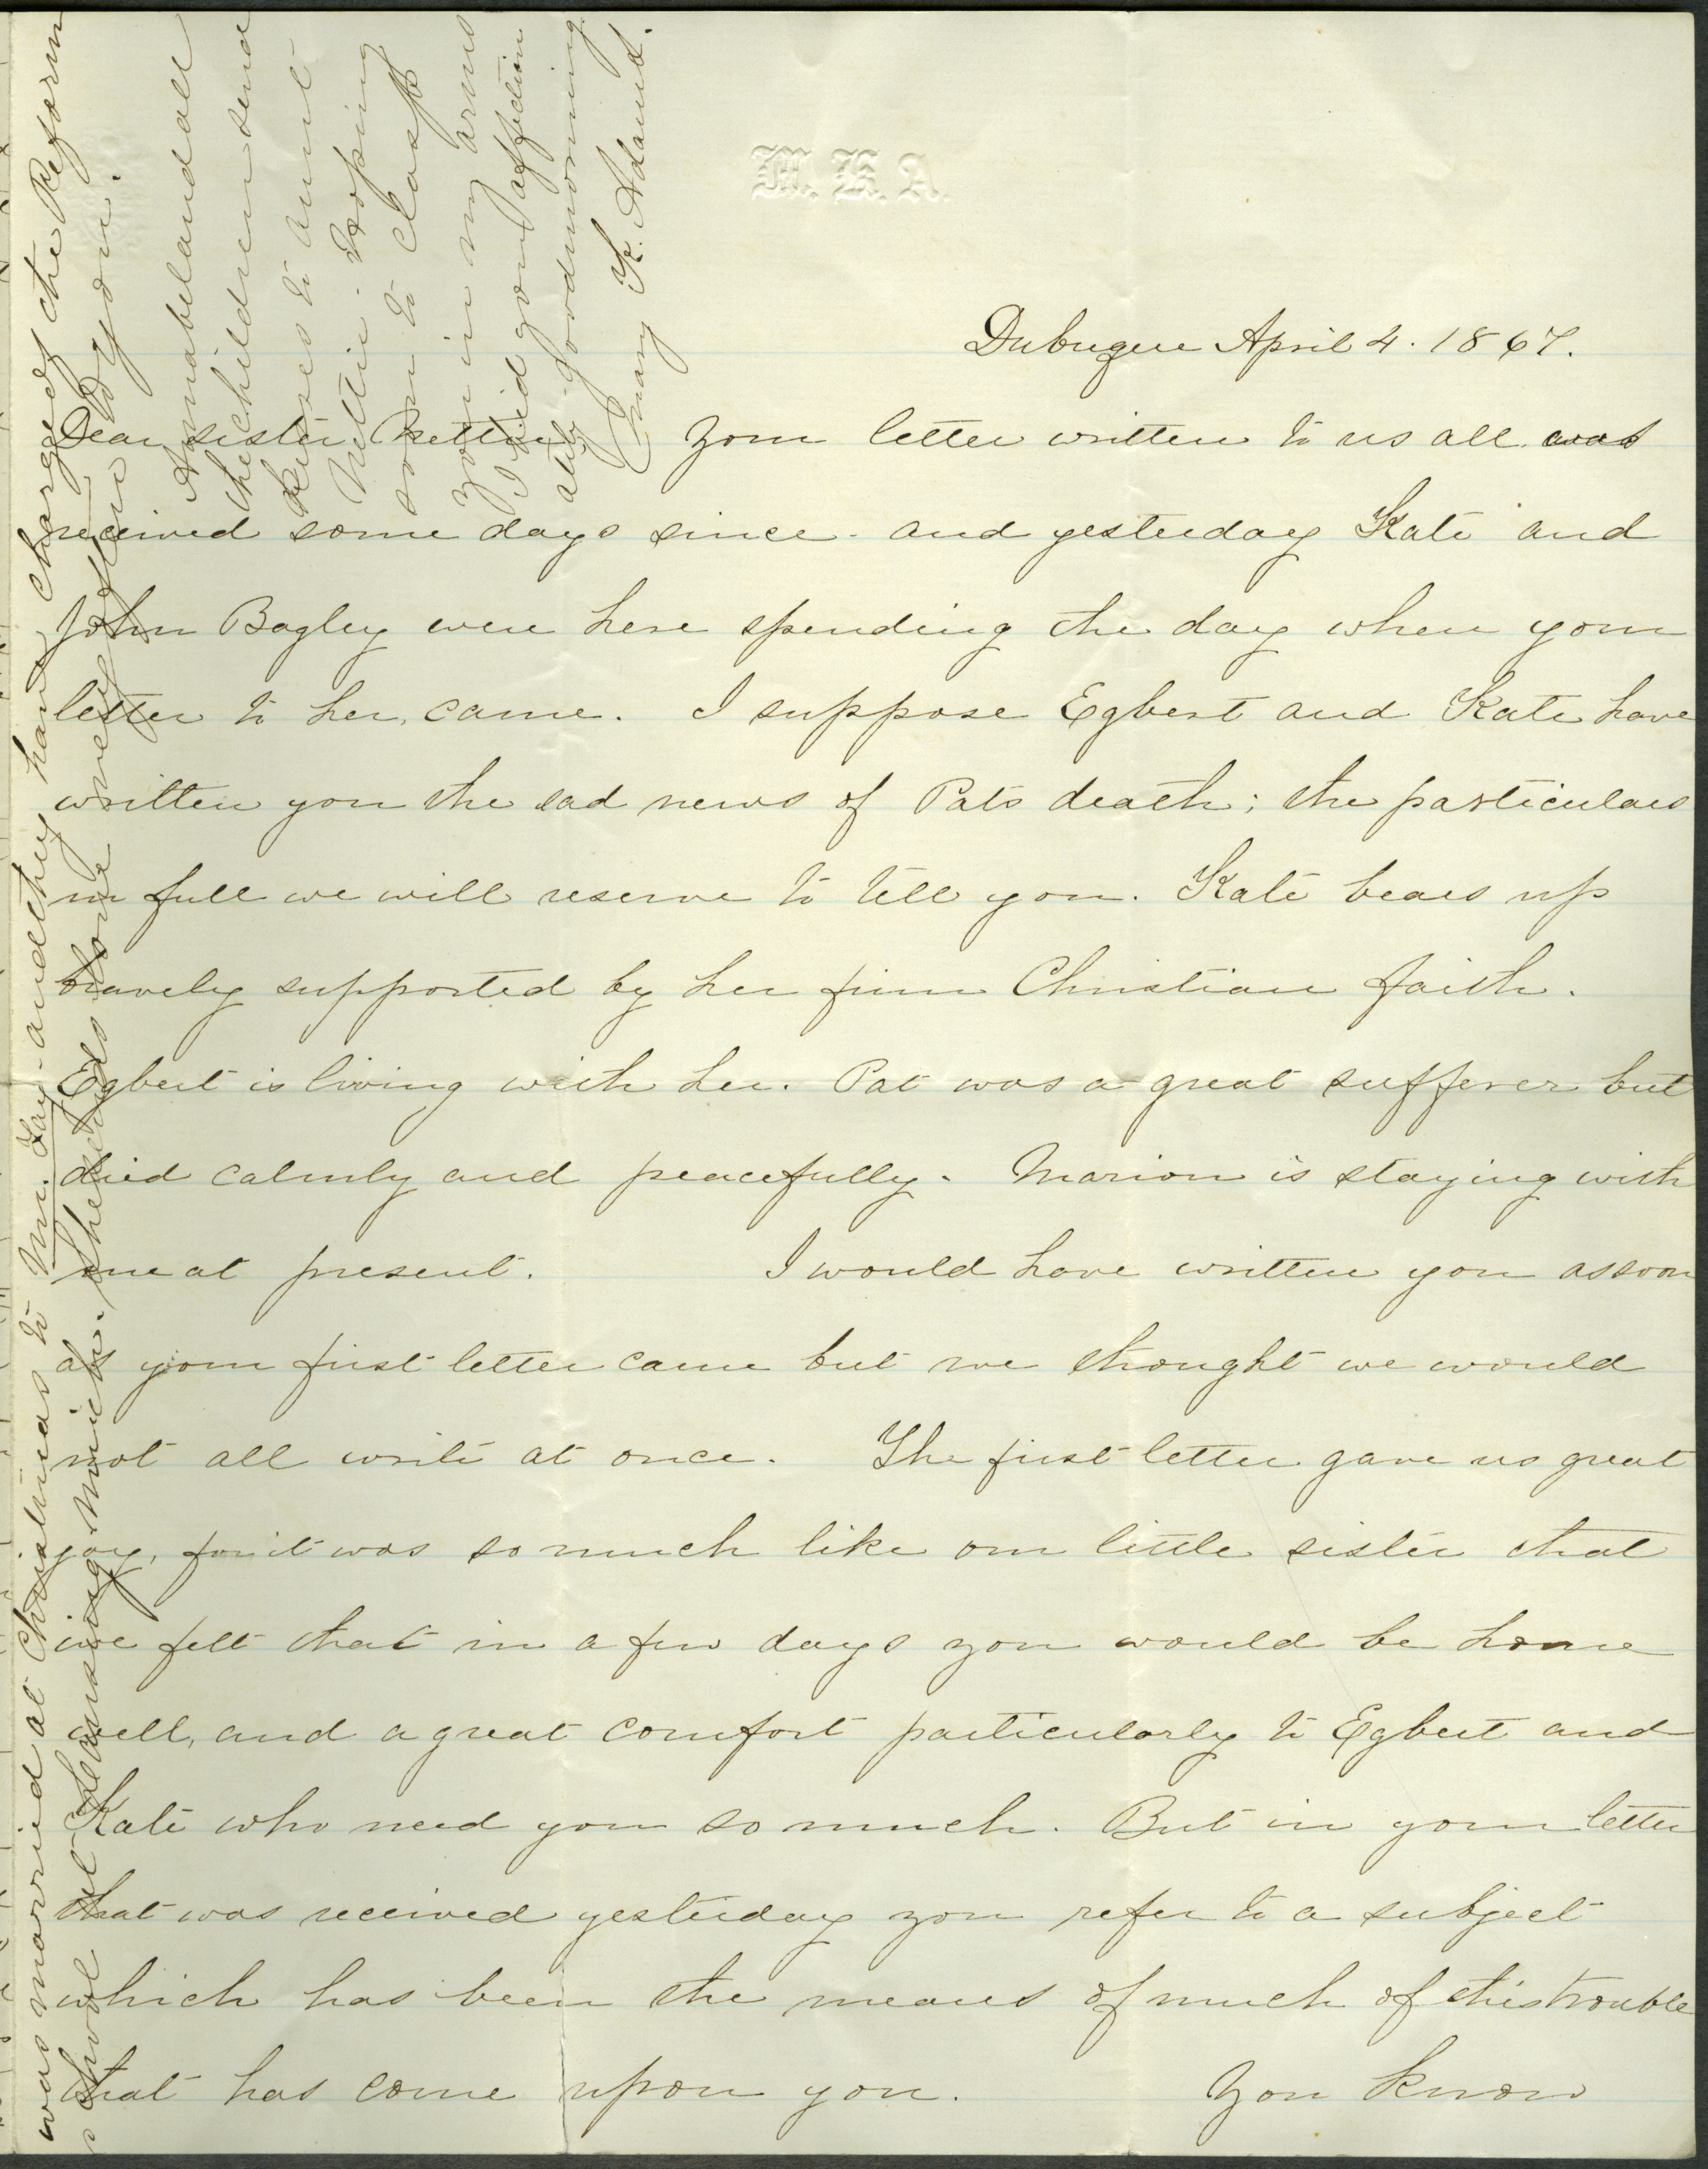 M. K. A.
Dubuque April 4. 1867.
Dear sister Nettie Your letter written to us all was
received some days since. and yesterday Kate and
John Bagley were here spending the day when your
letter to her, came. I suppose Egbert and Kate have
written you the sad news of Pats death; the particulars
in full we will reserve to tell you. Kate bears up
bravely supported by her firm Christian faith.
Egbert is living with her. Pat was a great sufferer but
died calmly and peacefully. Marion is staying with
me at present. I would have written you as soon
as your first letter came but we thought we would
not all write at once. The first letter gave us great
joy, for it was so much like our little sister that
we felt that in a few days you would be home
well, and a great comfort particularly to Egbert and
Kate who need you so much. But in your letter
that was received yesterday you refer to a subject
which has been the means of much of this trouble
that has come upon you. You know
was married at Christmas to Mr. Fay and they have charge of the Reform
school at Lansing Mich. She sends love
to you.
Annabel and all
the children send
kisses to aunt
Nettie. Hoping
soon to clasp
you in my arms
I bid you affection
ately good morning
Mary K. Adams.